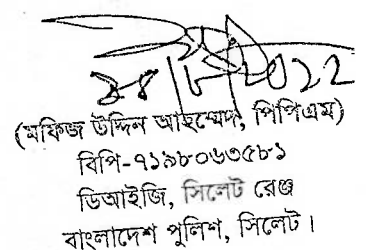 (মফিজ উদ্দিন আহম্মেদ, পিপিএম)
বিপি-৭১৯৮০৬৩৫৮১
ডিআইজি, সিলেট রেঞ্জ
বাংলাদেশ পুলিশ, সিলেট।